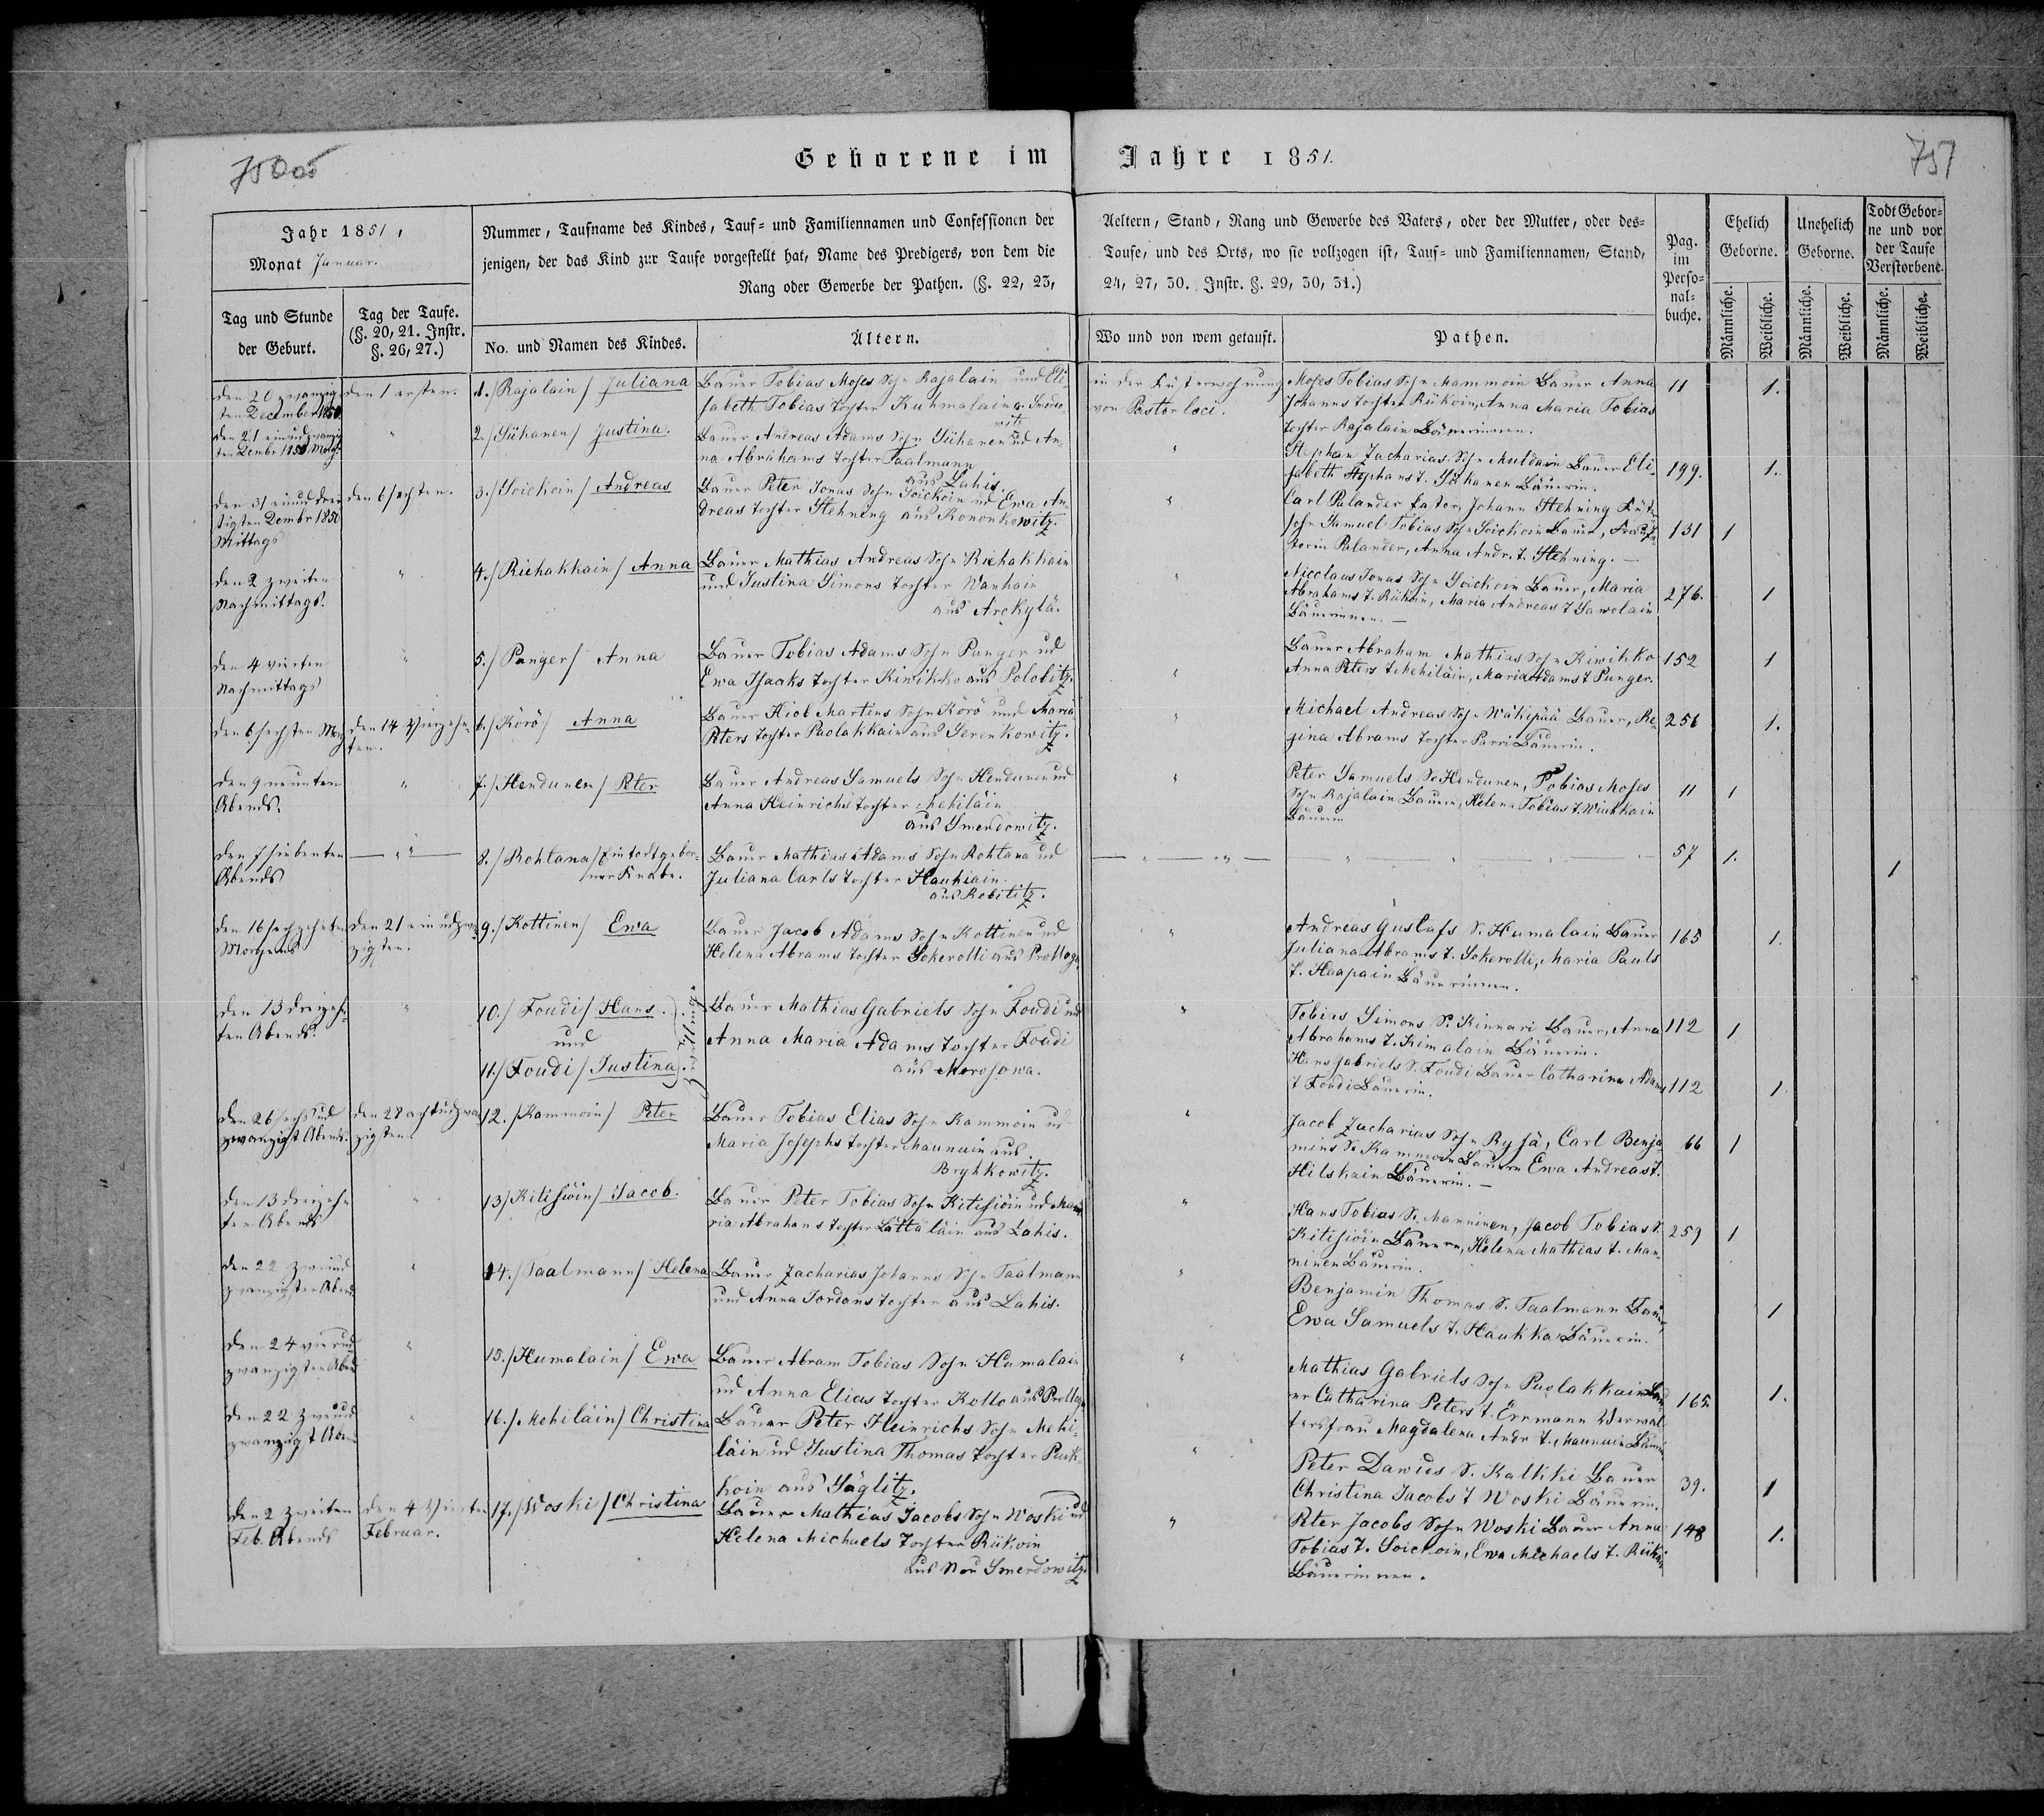 Geborene im Jahre 1851.
757
Jahr 1851,
Monat Januar.
Tag und Stunde
der Geburt.
Tag der Taufe.
(§. 20, 21. Instr.
§. 26, 27.)
Nummer, Taufname des Kindes, Tauf= und Familiennamen und Confessionen der
jenigen, der das Kind zur Taufe vorgestellt hat, Name des Predigers, von dem die
Rang oder Gewerbe der Pathen. (§. 22, 23,
No. und Namen des Kindes.
Ältern.
Aeltern, Stand, Rang und Gewerbe des Vaters, oder der Mutter, oder des=
Taufe, und des Orts, wo sie vollzogen ist, Tauf= und Familiennamen, Stand,
24, 27, 30. Instr. §. 29, 30, 31.)
Wo und von wem getauft.
Pathen.
Pag.
im
Perso=
nal=
buche.
Ehelich
Geborne.
Unehelich
Geborne.
Todt Gebor=
ne und vor
der Taufe
Verstorbene.
Männliche.
Weibliche.
Männliche.
Weibliche.
Männliche.
Weibliche.
den 20 zwanzig
ten December 1850
den 1 ersten.
1./ Rajalain/ Juliana
Bauer Tobias Moses Sohn Rajalain und Eli
sabeth Tobias Tochter Kuhmalain a. Smerdo
witz
in der Küsterwohnung
von Pastor loci.
Moses Tobias Sohn Mammoin Bauer Anna
Johanns Tochter Rükoin, Anna Maria Tobias
Tochter Rajalain Bäuerinnen.
11
1.
den 21 einundzwanzig
ten Dembr 1850 Morg.
"
2./ Sühanen/ Justina.
Bauer Andreas Adams Sohn Sühanen ud An
na Abrahams Tochter Taalmann
aus Lahis.
"
Stephan Zacharias Sohn Muldain Bauer Eli
sabeth Stephans T. Sühanen Bäuerin.
199.
1.
den 31 einunddrei
sigsten Dembr 1850
Mittags
den 6 sechsten.
3./ Soickoin/ Andreas
Bauer Peter Jonas Sohn Soickoin ud Ewa An
dreas Tochter Stehning aus Kononkowitz.
"
Carl Palander Johann Stehning Küst
Sohn Samuel Tobias Sohn Soickoin Bauer,
Palander, Anna Andr. T. Stehning. —
131
1
den 2 zweiten
Nachmittags.
"
4./ Riehakkain/ Anna
Bauer Mathias Andreas Sohn Riehakkain
und Justina Simons Tochter Wanhain
aus Arckylä.
"
Nicolaus Jonas Sohn Soickoin Bauer, Maria
Abrahams T. Rükoin, Maria Andreas T Sawolain
Bäuerinnen. —
276.
1
den 4 vierten
Nachmittags
"
5./ Punger/ Anna
Bauer Tobias Adams Sohn Punger ud
Ewa Isaaks Tochter Kiwikko aus Polobitz.
"
Bauer Abraham Mathias Sohn Kiwikko
Anna Peters T Mehiläin, Maria Adams T Punger.
152
1
den 6 sechsten Morg
den 14 Vierzehn
ten.
6./ Körö/ Anna
Bauer Hiob Martins Sohn Körö und Maria
Peters Tochter Paolakkain aus Serenkowitz.
"
Michael Andreas Sohn Wäkipää Bauer, Re
gina Abrams Tochter Parri Bäuerin.
256
1.
den 9 neunten
Abends.
"
7./ Hendunen/ Peter
Bauer Andreas Samuels Sohn Hendunen ud
Anna Heinrichs Tochter Mehiläin
aus Smerdowitz.
"
Peter Samuels S. Hendunen, Tobias Moses
Sohn Rajalain Bauern, Helena Tobias T. Winkkain
Bäuerin
11
1
den 7 siebenten
Abends
— " —
8./ Rohtana/ Ein todt gebor
ner Knabe.
Bauer Mathias Adams Sohn Rohtana ud
Juliana Carls Tochter Haukiain.
aus Robititz.
57
1.
1
den 16 sechzehnten
Morgens
den 21 einudzwan
zigsten.
9./ Kottinen/ Ewa
Bauer Jacob Adams Sohn Kottinen ud
Helena Abrams Tochter Sokerolli aus Prologa
"
Andreas Gustafs S. Humalain Bauer
Juliana Abrams T. Sokerolli, Maria Pauls
T. Haapain Bäuerinnen.
165
1.
den 13 dreizehn
ten Abends.
"
10./ Foudi/ Hans.
und
11./ Foudi/ Justina.
Zwillinge.
Bauer Mathias Gabriels Sohn Foudi und
Anna Maria Adams Tochter Foudi
aus Morosowa.
"
Tobias Simons S. Kinnari Bauer, Anna
Abrahams T. Kimalain Bäuerin.
Hans Gabriels S. Foudi Bauer Catharina Adams
T Foudi Bäuerin.
112
1
112
1.
den 26 sechsud
zwanzigst Abends.
den 28 achtudzwan
zigsten.
12./ Kammoin/ Peter
Bauer Tobias Elias Sohn Kammoin ud
Maria Josephs Tochter Maunuin aus
Bryhkowitz.
"
Jacob Zacharias Sohn Rysä, Carl Benja
mins S. Kammoin Bauern Ewa Andreas T.
Hilskain Bäuerin. —
66
1
den 13 dreizehn
ten Abends
"
13/ Ritisiöin/ Jacob.
Bauer Peter Tobias Sohn Ritisiöin ud Ma
ria Abrahams Tochter Lättäläin aus Lahis.
"
Hans Tobias S. Manninen, Jacob Tobias S.
Ritisiöin Bauern, Helena Mathias T. Man
ninen Bäuerin.
259
1
den 22 zweiud
zwanzigsten Abend
"
14./ Taalmann/ Helena
Bauer Zacharias Johanns Sohn Taalmann
und Anna Jordans Tochter aus Lahis.
"
Benjamin Thomas S. Taalmann Bauer,
Ewa Samuels T. Haukka Bäuerin.
1
den 24 vierud
zwanzigsten Abend
"
15./ Humalain/ Ewa
Bauer Abram Tobias Sohn Humalain
ud Anna Elias Tochter Kotto aus Prologa
"
Mathias Gabriels Sohn Paolakkain Bau
er Catharina Peters T. Errmann Verwal
tersfrau Magdalena Andr T. Maunuin Bäuerin
165.
1.
den 22 zweiud
zwanzigst Aben
"
16./ Mehiläin/ Christina
Bauer Peter Heinrichs Sohn Mehi
läin ud Justina Thomas Tochter Puk
koin aus Jäglitz.
"
Peter Dawids S. Kalkki Bauer
Christina Jacobs T Woski Bäuerin.
39.
1
den 2 zweiten
Feb. Abends
den 4 Vierten
Februar.
17./ Woski/ Christina
Bauer Mathias Jacobs Sohn Woski ud
Helena Michaels Tochter Rükoin
aus Neu Smerdowitz.
"
Peter Jacobs Sohn Woski Bauer Anna
Tobias T. Soickoin, Ewa Michaels T. Rükoin
Bäuerinnen.
148
1.